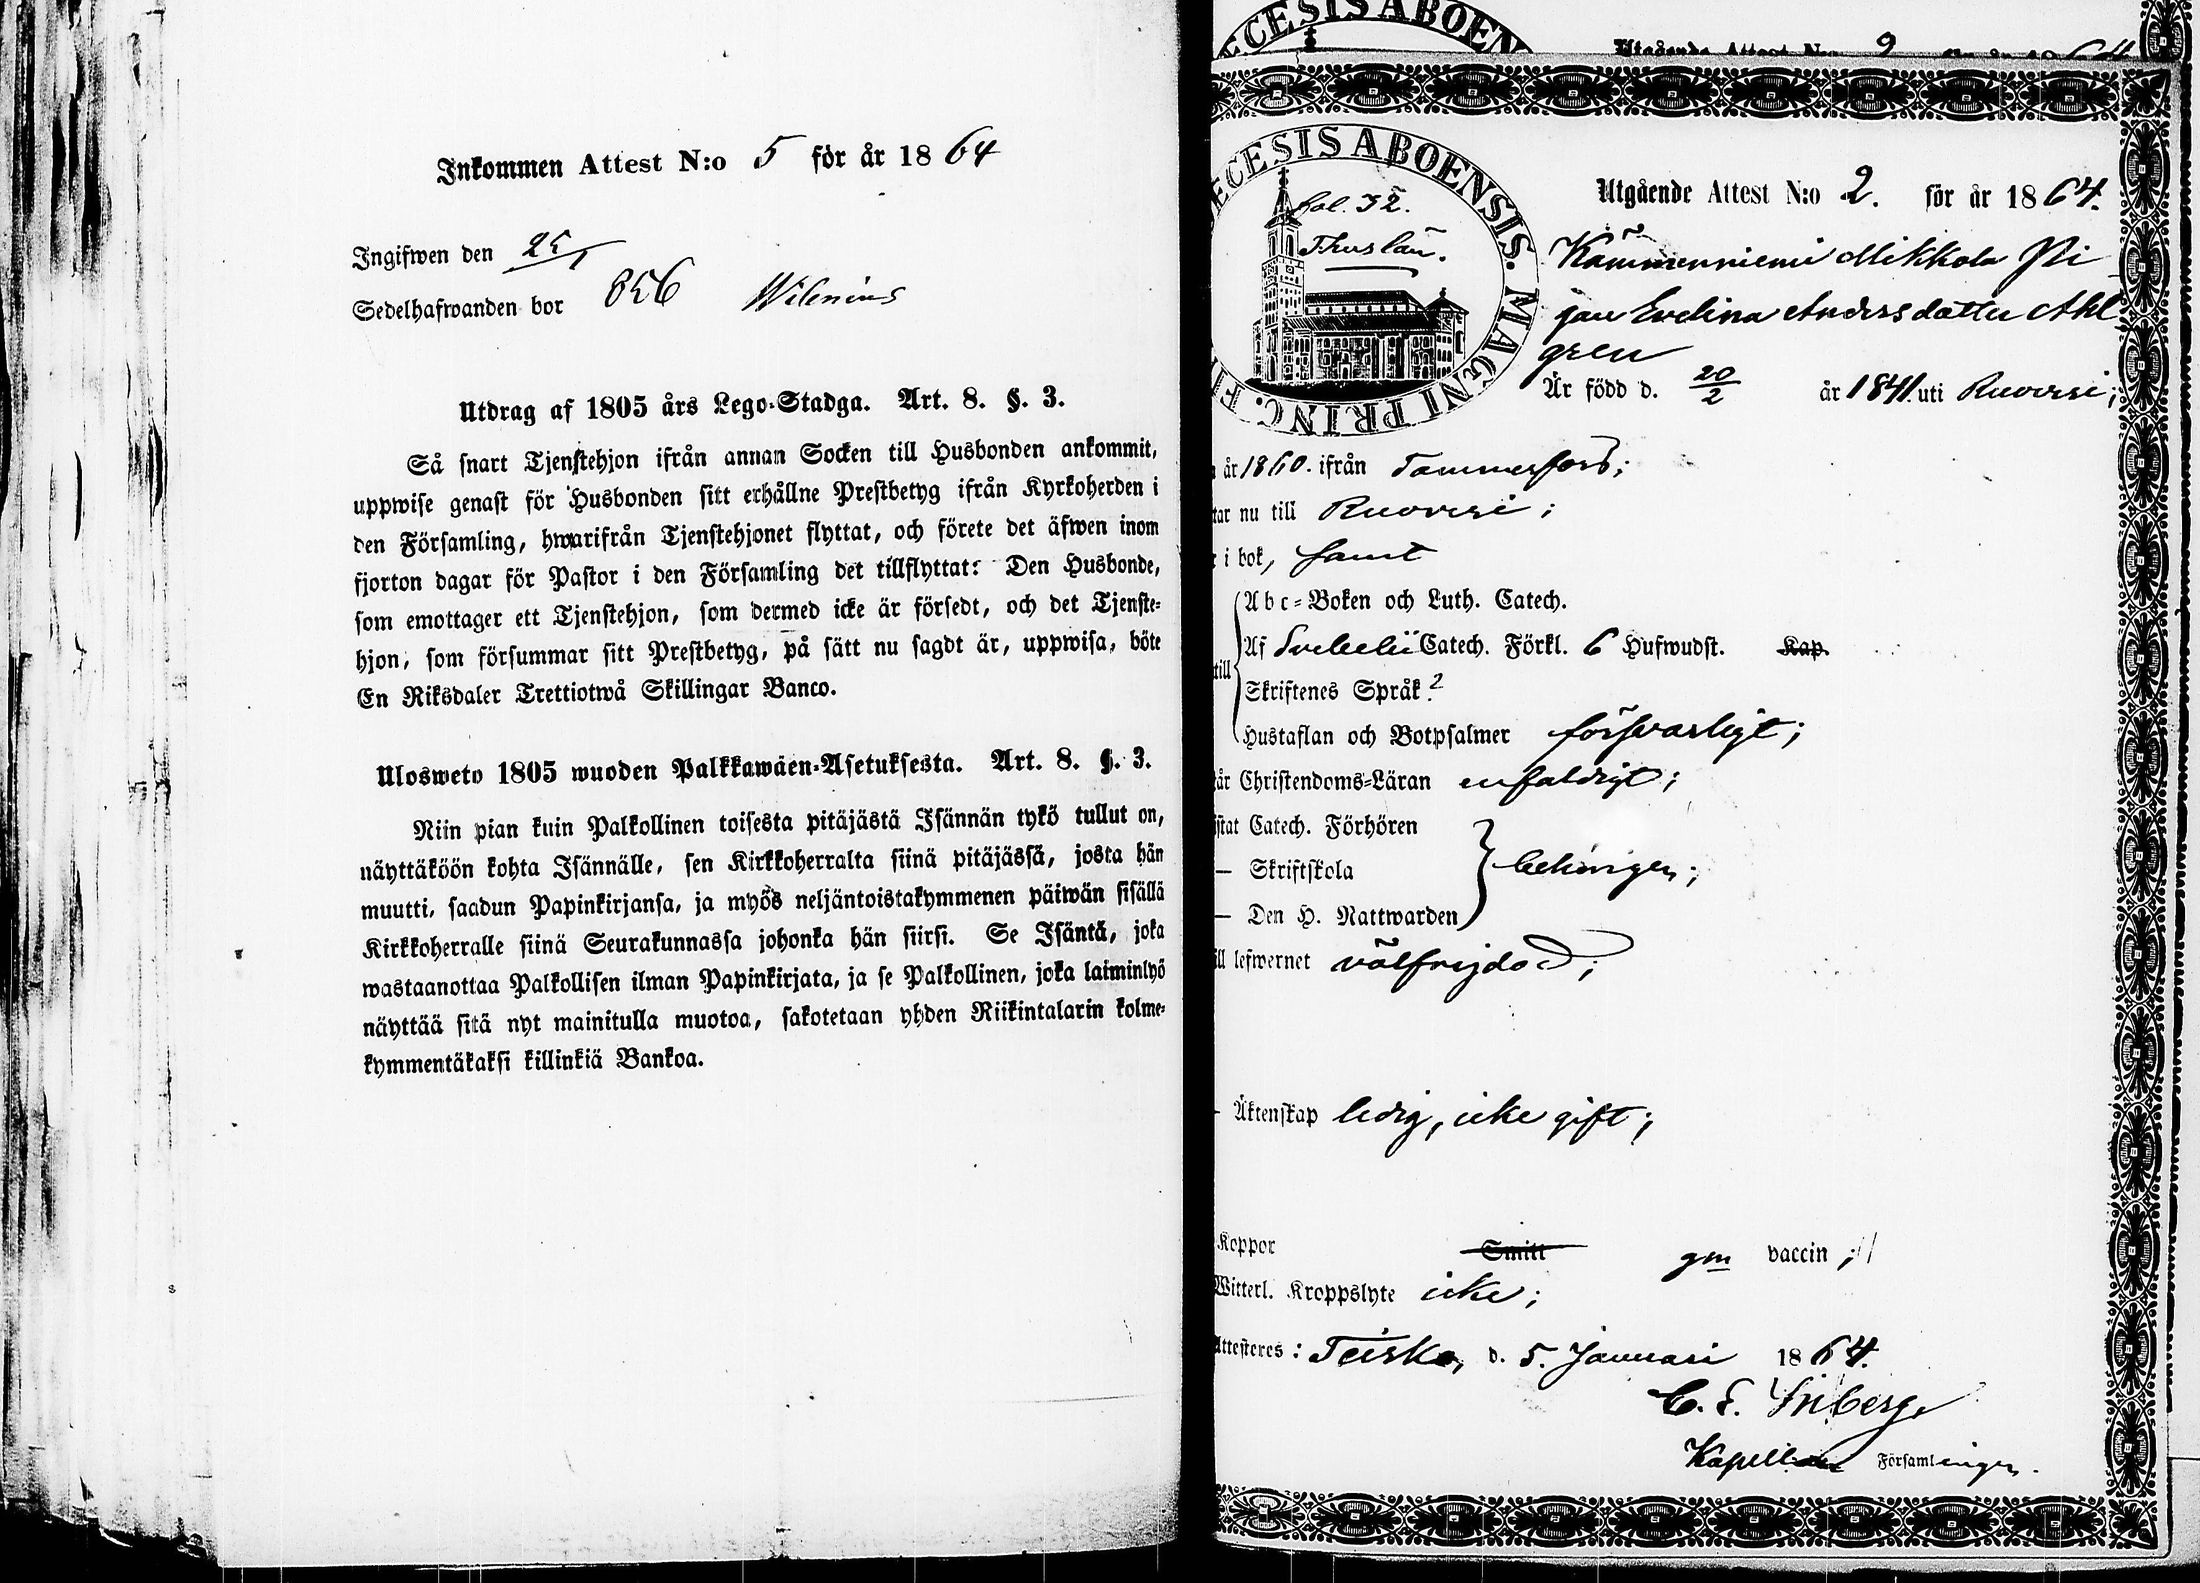 Inkommen Attest N:o 5 för år 1864
Ingifwen den 25/1
Sedelhafwanden bor 856 Wilenius
Utdrag af 1805 års Lego-Stadga. Art. 8. §. 3.
Så snart Tjenstehjon ifrån annan Socken till Husbonden ankommit,
uppwise genast för Husbonden sitt erhållne Prestbetyg ifrån Kyrkoherden i
den Församling, hwarifrån Tjenstehjonet flyttat, och förete det äfwen inom
fjorton dagar för Pastor i den Församling det tillflyttat: Den Husbonde,
som emottager ett Tjenstehjon, som dermed icke är försedt, och det Tjenste-
hjon, som försummar sitt Prestbetyg, på sätt nu sagdt är, uppwisa, böte
En Riksdaler Trettiotwå Skillingar Banco.
Ulosweto 1805 wuoden Palkkawäen-Asetuksesta. Art. 8. §. 3.
Niin pian kuin Palkollinen toisesta pitäjästä Isännän tykö tullut on,
näyttäköön kohta Isännälle, sen Kirkkoherralta siinä pitäjässä, josta hän
muutti, saadun Papinkirjansa, ja myös neljäntoistakymmenen päiwän sisällä
Kirkkoherralle siinä Seurakunnassa johonka hän siirsi. Se Isäntä, joka
wastaanottaa Palkollisen ilman Papinkirjata, ja se Palkollinen, joka laiminlyö
näyttää sitä nyt mainitulla muotoa, sakotetaan yhden Riikintalarin kolme-
kymmentäkaksi killinkiä Bankoa.
ECESIS ABOEN
Utgående Attest N:o 2 för år 1864
ECESIS ABOENSIS. MAGNI PRINC. F
fol. 32.
Thuslan.
Utgående Attest N:o 2. för år 1864.
Kämmenniemi Mikkola Pi
gan Evelina Andersdotter Ahl
gren
Är född d. 20/2 år 1841. uti Ruovesi;
år 1860. ifrån Tammerfors;
tar nu till Ruovesi;
i bok, samt
Abc-Boken och Luth. Catech.
Af Svebelii Catech. Förkl. 6 Hufwudst. Kap.
till
Skriftenes Språk ?
Hustaflan och Botpsalmer försvarligt;
år Christendoms-Läran enfaldigt;
istat Catech. Förhören
— Skriftskola behörigen;
— Den H. Nattwarden
ill lefwernet välfrejdad;
- Äktenskap ledig, icke gift;
Koppor Smitt gm vaccin;
Witterl. Kroppslyte icke;
Attesteres: Teisko, d. 5. Januari 1864.
C. F. Friberg
Kapellan Församlingen.